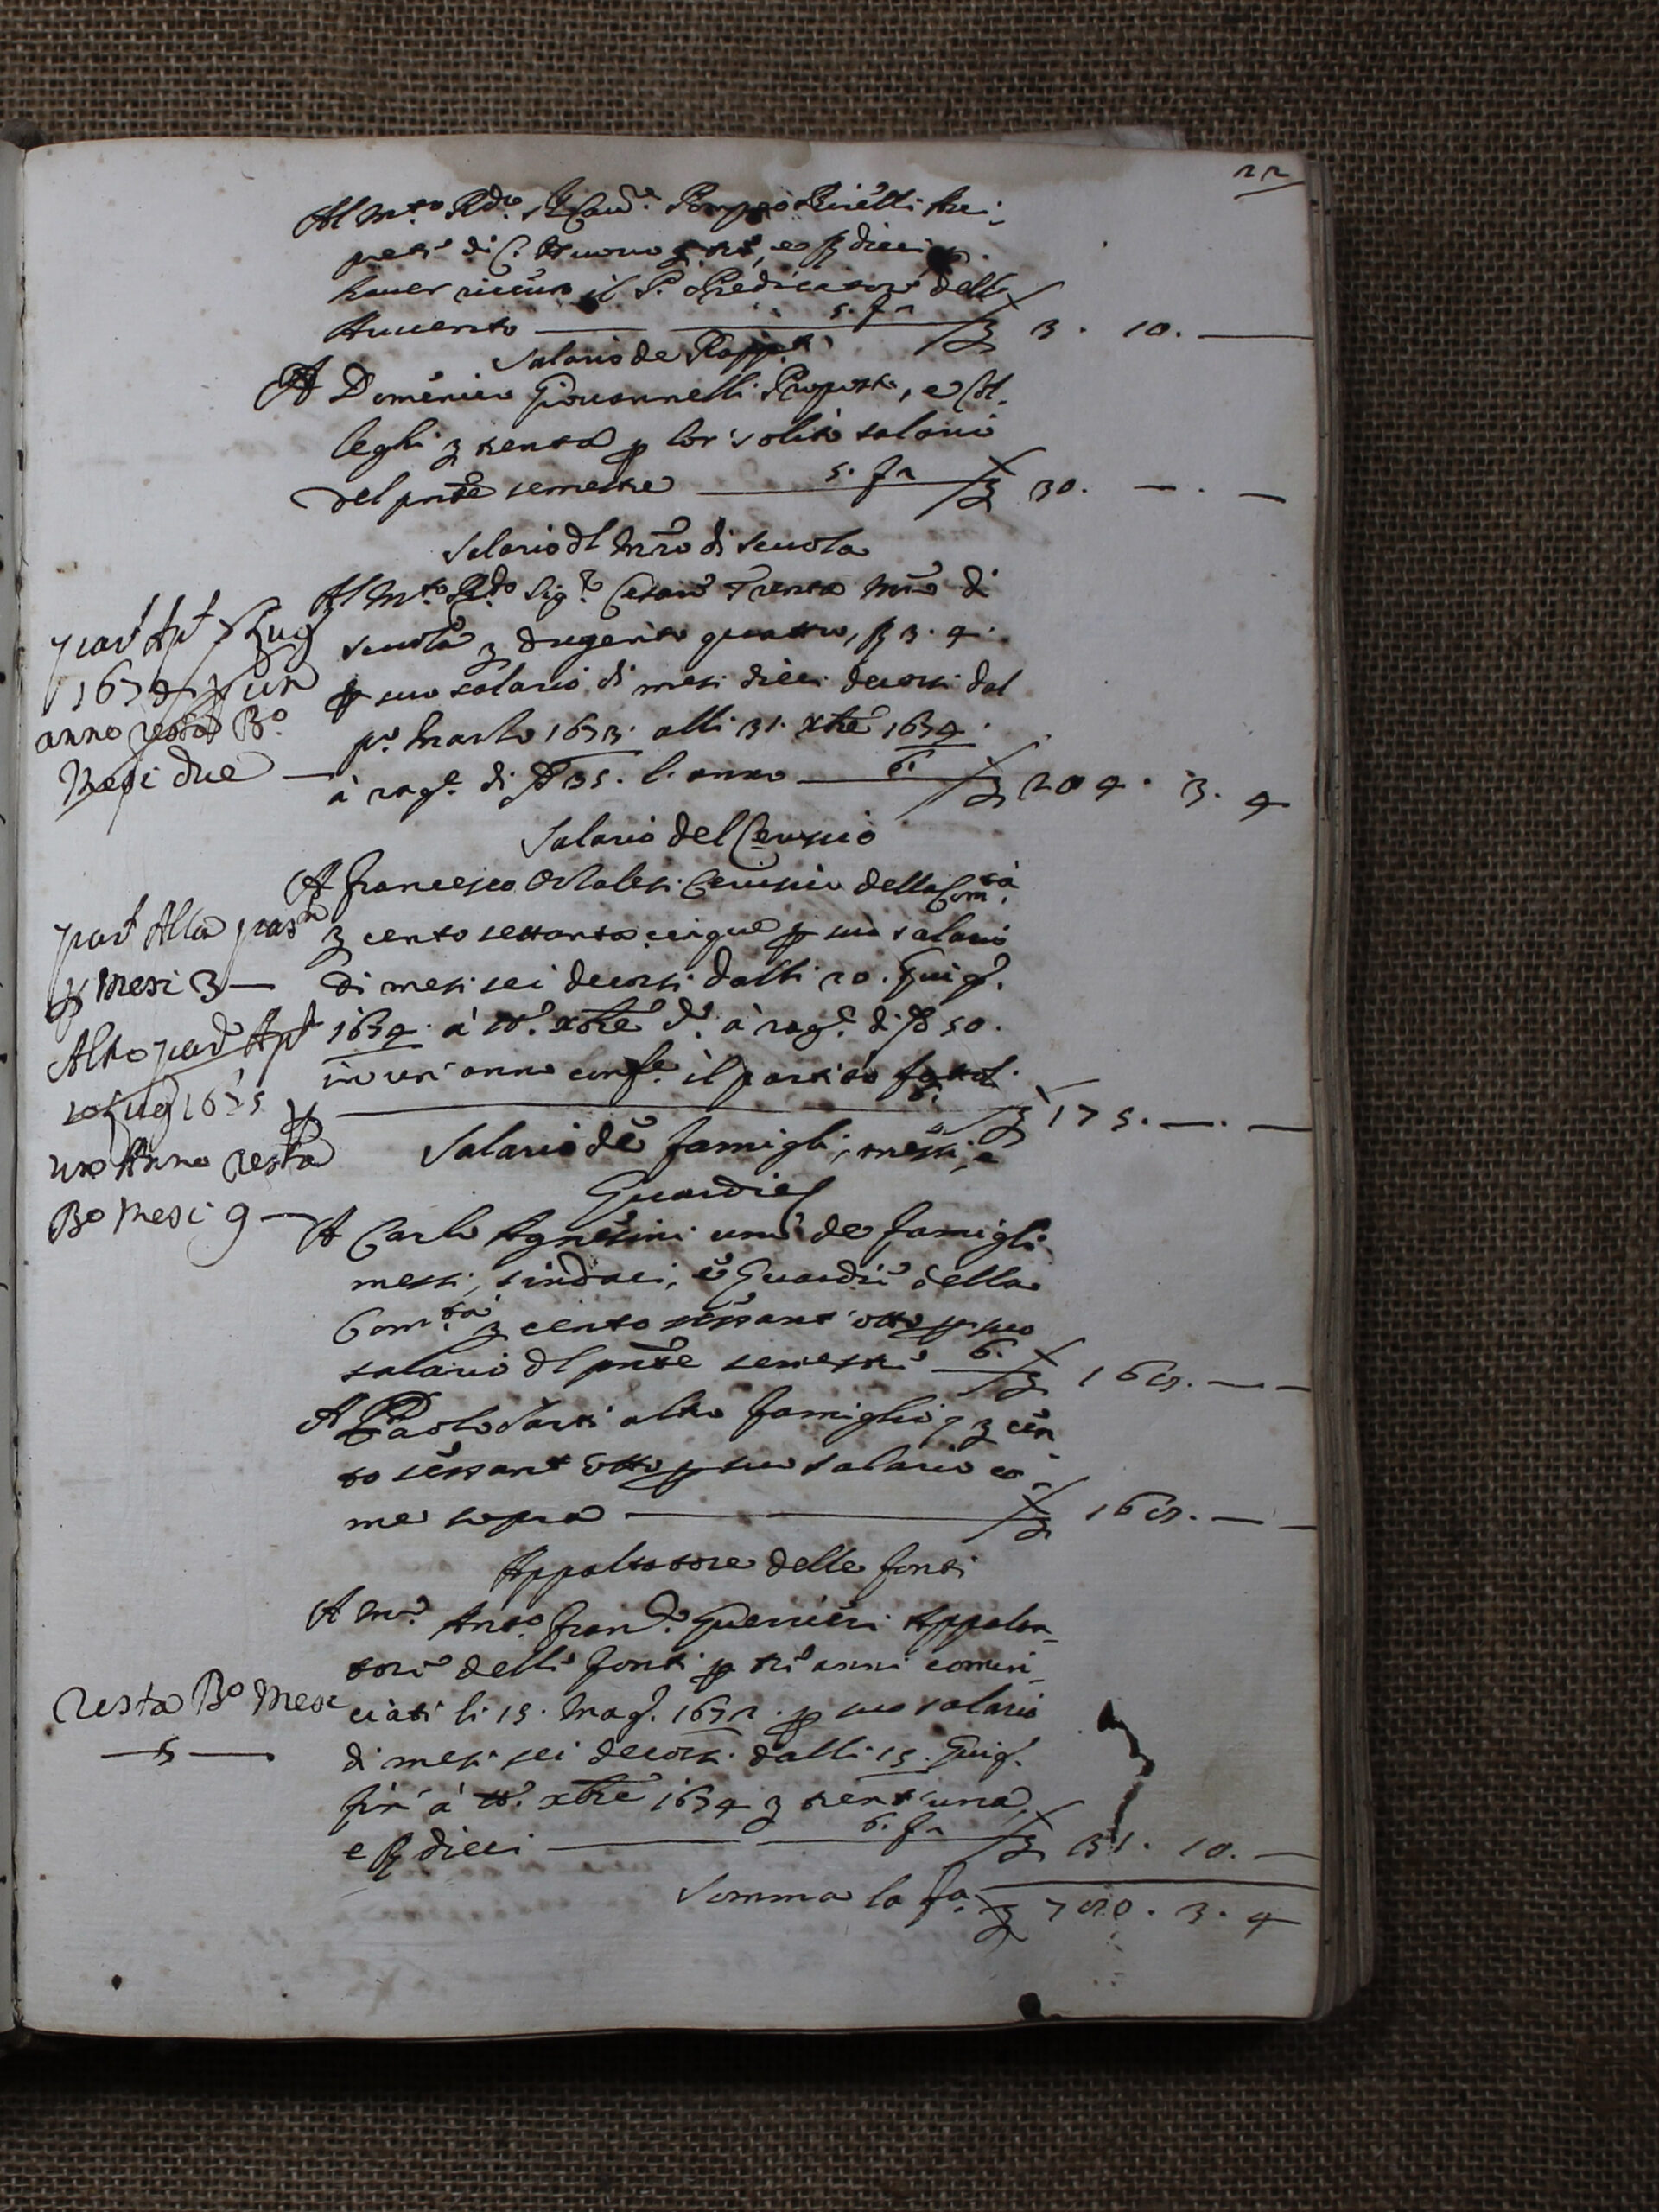 22
Al m.to R.do Pompeo
di C. Nuovo e ß dieci
hauer il P. Predicatore dell
Auuento 5. fa 3. 10. —
Salario de Rapp.ti
A Domenico Giouannelli Proposto, e Col-
leghi trenta p lor solito salario
del pnte semestre 5. fa 30. — . —
Salario dl Mro di scuola
Al m.to R.do Sig.r Cesare Trenta Mro di
scuola dugento quattro, ß 3. 4.
p suo salario di mesi dieci decorsi dal
p.o Marzo 1653. alli 31. xbre 1654.
à rag.e di 35. l'anno 6. 204. 3. 4
part Apt Lug
1654 p un
anno resta B.o
Mesi due —
Salario del Cerusico
A Francesco Cerusico della Com.tà
cento settanta cinque p suo salario
di mesi sei decorsi dalli 20. Giug.
1654. à xbre d.o à rag.e di 50.
in un anno conf.e il partito
175. — . —
part Alla
p Mesi 3 —
Altro part Apt
Lug 1655 p
un Anno resta
Bo Mesi 9 —
Salario de famigli, messi, e
Guardie
A Carlo Agnesini uno de famigli
messi, sindaci, e Guardie della
Com.tà cento sessant'otto p suo
salario dl pnte semestre 6. 168. — —
A Paolo Sarti altro famiglio cen-
to sessant'otto p suo salario co-
me sopra 168. — —
Appaltatore delle fonti
A m.r Ant.o Fran.co Guerrieri Appalta-
tore delle fonti p tre anni comin-
ciati li 15. Mag. 1652. p suo salario
di mesi sei decorsi dalli 15. Giug.
fin à xbre 1654 trent'una,
e ß dieci 6. fa 31. 10. —
resta Bo Mesi
— 5 —
Somma la fa. 780. 3. 4